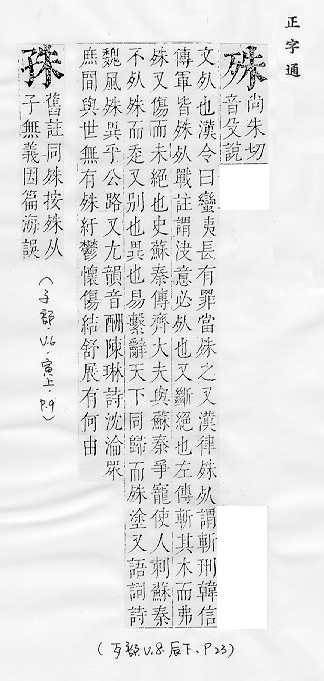 正字通
殊
尚朱切
音殳說
文死也漢令曰蠻夷長有罪當殊之又漢律殊死謂斬刑韓信
傳軍皆殊死戰註謂决意必死也又斷絕也左傳斬其木而弗
殊又傷而未絕也史蘇秦傳齊大夫與蘇秦爭寵使人刺蘇秦
不死殊而走又別也異也易繫辭天下同歸而殊塗又語詞詩
魏風殊異乎公路又尤韻音酬陳琳詩沈淪眾
庶間與世無有殊紆鬱懷傷結舒展有何由
舊註同殊按殊从
子無義因篇海誤
(子部.V.6.寅上.P.9)
(歹部V.8.辰下.P23)